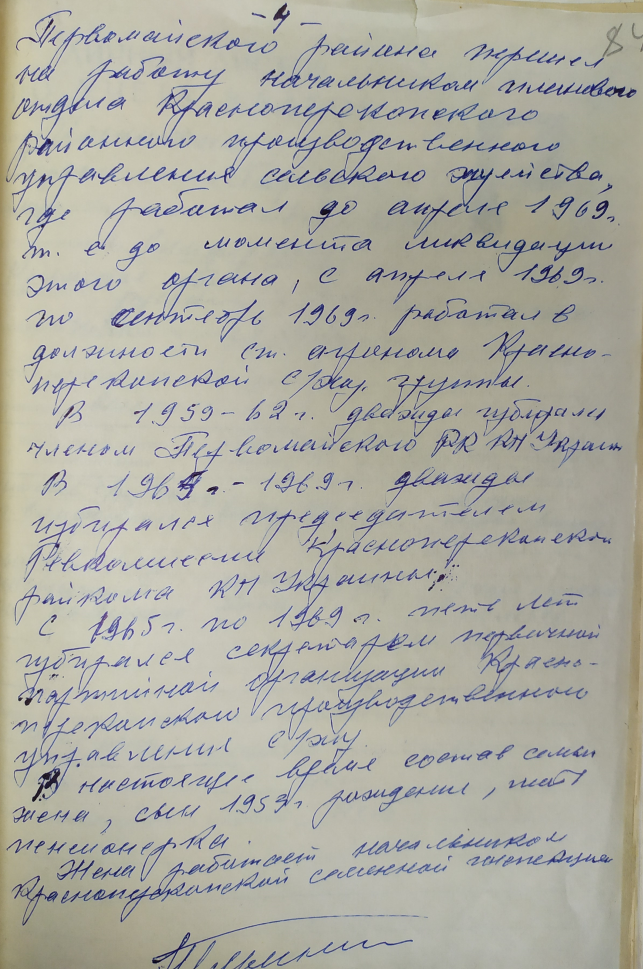 - 4 -
84
Первомайского района перешел
на работу начальником планового
отдела Красноперекопского
районного производственного
управления сельского хозяйства,
где работал до апреля 1969г.
т. е до момента ликвидации
этого органа, с апреля 1969г.
по сентябрь 1969г. работал в
должности ст. агронома Красно-
перекопской с/хоз. группы.
В 1959-62 г. дважды избирался
членом Первомайского РК КП Украины
В 1967г. - 1969г. дважды
избирался председателем
Ревкомиссии Красноперекопского
райкома КП Украины.
С 1965г. по 1969г. пять лет
избирался секретарем первичной
партийной организации Красно-
перекопского производственного
управления с/хоз.
В настоящее время состав семьи
жена, сын 1953г рождения, мать
пенсионерка.
Жена работает начальником
Красноперекопской семенной инспекции